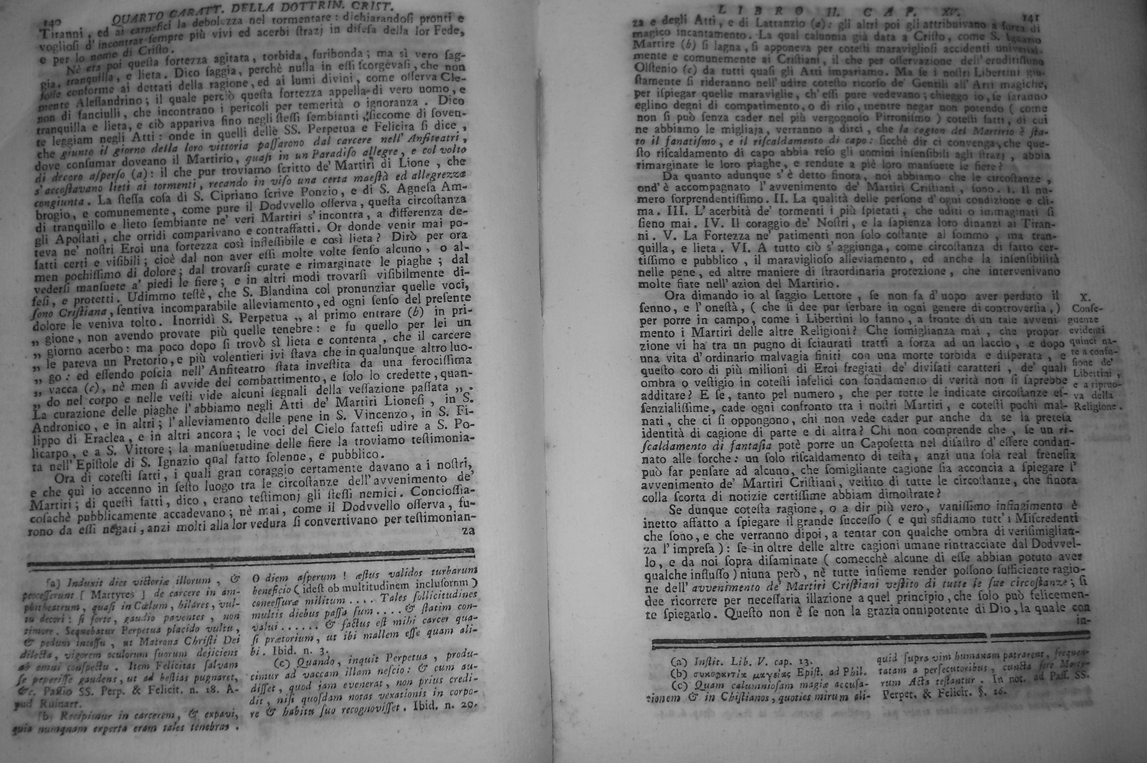 140 QUARTO CARATT. DELLA DOTTRIN. CRIST.
Tiranni, ed ai carnefici la debolezza nel tormentare: dichiarandoſi pronti e
vogliosi d' incontrar ſempre più vivi ed acerbi ſtrazj in difeſa della lor Fede,
e per lo nome di Criſto.
Nè era poi queſta fortezza agitata, torbida, furibonda; ma sì vero ſag-
gia, tranquilla, e lieta. Dico ſaggia, perchè nulla in eſſi ſcorgevaſi, che non
foſſe conforme ai dettati della ragione, ed ai lumi divini, come oſſerva Cle-
mente Aleſſandrino; il quale perciò queſta fortezza appella di vero uomo, e
non di fanciulli, che incontrano i pericoli per temerità o ignoranza. Dico
tranquilla e lieta, e ciò appariva fino negli ſteſſi ſembianti, ſiccome di ſoven-
te leggiam negli Atti: onde in quelli delle SS. Perpetua e Felicita ſi dice,
che giunto il giorno della loro vittoria paſſarono dal carcere nell' Anfiteatri,
dove conſumar doveano il Martirio, quaſi in un Paradiſo allegre, e col volto
di decoro aſperſo (a): il che pur troviamo ſcritto de' Martiri di Lione, che
s' accoſtavano lieti ai tormenti, recando in viſo una certa maeſtà ed allegrezza
congiunta. La ſteſſa coſa di S. Cipriano ſcrive Ponzio, e di S. Agneſa Am-
brogio, e comunemente, come pure il Dodvvello oſſerva, queſta circoſtanza
di tranquillo e lieto ſembiante ne' veri Martiri s' incontra, a differenza de-
gli Apoſtati, che orridi comparivano e contraffatti. Or donde venir mai po-
teva ne' noſtri Eroi una fortezza così infleſſibile e così lieta? Dirò per ora
fatti certi e viſibili; cioè dal non aver eſſi molte volte ſenſo alcuno, o al-
men pochiſſimo di dolore; dal trovarſi curate e rimarginate le piaghe; dal
vederſi manſuete a' piedi le fiere; e in altri modi trovarſi viſibilmente di-
feſi, e protetti. Udimmo teſtè, che S. Blandina col pronunziar quelle voci,
ſono Criſtiana, ſentiva incomparabile alleviamento, ed ogni ſenſo del preſente
dolore le veniva tolto. Inorridì S. Perpetua „ al primo entrare (b) in pri-
„ gione, non avendo provate più quelle tenebre: e fu quello per lei un
„ giorno acerbo: ma poco dopo ſi trovò sì lieta e contenta, che il carcere
„ le pareva un Pretorio, e più volentieri ivi ſtava che in qualunque altro luo-
„ go: ed eſſendo poſcia nell' Anfiteatro ſtata inveſtita da una ferociſſima
„ vacca (c), nè men ſi avvide del combattimento, e ſolo lo credette, quan-
„ do nel corpo e nelle veſti vide alcuni ſegnali della veſſazione paſſata „.
La curazione delle piaghe l' abbiamo negli Atti de' Martiri Lioneſi, in S.
Andronico, e in altri; l' alleviamento delle pene in S. Vincenzo, in S. Fi-
lippo di Eraclea, e in altri ancora; le voci del Cielo fatteſi udire a S. Po-
licarpo, e a S. Vittore; la manſuetudine delle fiere la troviamo teſtimonia-
ta nell' Epiſtole di S. Ignazio qual fatto ſolenne, e pubblico.
Ora di coteſti fatti, i quali gran coraggio certamente davano a i noſtri,
e che qui io accenno in ſeſto luogo tra le circoſtanze dell' avvenimento de'
Martiri; di queſti fatti, dico, erano teſtimonj gli ſteſſi nemici. Concioſſia-
coſachè pubblicamente accadevano; nè mai, come il Dodvvello oſſerva, fu-
rono da eſſi negati, anzi molti alla lor vedura ſi convertivano per teſtimonian-
za
(a) Induxit dies victoriæ illorum, &
proceſſerunt [ Martyres ] de carcere in am-
phitheatrum, quaſi in Cælum, hilares, vul-
tu decori: ſi forte, gaudio paventes, non
timore. Sequebatur Perpetua placido vultu,
& pedum inceſſu, ut Matrona Chriſti Dei
dilecta, vigorem oculorum ſuorum dejiciens
ab omni conſpectu. Item Felicitas ſalvam
ſe peperiſſe gaudens, ut ad beſtias pugnaret,
&c. Paſſio SS. Perp. & Felicit. n. 18. A-
pud Ruinart.
(b) Recipimur in carcerem, & expavi,
quia numquam experta eram tales tenebras.
O diem aſperum! æſtus validos turbarum
beneficio ( ideſt ob multitudinem incluſorum )
conceſſuræ militum .... Tales ſollicitudines
multis diebus paſſa ſum .... & ſtatim con-
valui ...... & factus eſt mihi carcer qua-
ſi prætorium, ut ibi mallem eſſe quam ali-
bi. Ibid. n. 3.
(c) Quando, inquit Perpetua, produ-
cimur ad vaccam illam neſcio: & cum au-
diſſet, quod jam evenerat, non prius credi-
dit, niſi quoſdam notas vexationis in corpo-
re & habitu ſuo recognoviſſet. Ibid. n. 20.
LIBRO II. CAP. XV. 141
za e degli Atti, e di Lattanzio (a): gli altri poi gli attribuivano a forza di
magico incantamento. La qual calunnia già data a Criſto, come S. Luciano
Martire (b) ſi lagna, ſi apponeva per coteſti maraviglioſi accidenti univerſal-
mente e comunemente ai Criſtiani, il che per oſſervazione dell' eruditiſſimo
Olſtenio (c) da tutti quaſi gli Atti impariamo. Ma ſe i noſtri Libertini giu-
ſtamente ſi rideranno nell' udire coteſto ricorſo de' Gentili all' Arti magiche,
per iſpiegar quelle maraviglie, ch' eſſi pure vedevano; chieggo io, ſe ſaranno
eglino degni di compatimento, o di riſo, mentre negar non potendo ( come
non ſi può ſenza cader nel più vergognoſo Pirroniſmo ) coteſti fatti, di cui
ne abbiamo le migliaja, verranno a dirci, che la cagion del Martirio è ſta-
to il fanatiſmo, e il riſcaldamento di capo: ſicchè dir ci convenga, che que-
ſto riſcaldamento di capo abbia reſo gli uomini inſenſibili agli ſtrazj, abbia
rimarginate le loro piaghe, e rendute a piè loro manſuete le fiere?
Da quanto adunque s' è detto finora, noi abbiamo che le circoſtanze,
ond' è accompagnato l' avvenimento de' Martiri Criſtiani, ſono. I. Il nu-
mero ſorprendentiſſimo. II. La qualità delle perſone d' ogni condizione e cli-
ma. III. L' acerbità de' tormenti i più ſpietati, che uditi o immaginati ſi
ſieno mai. IV. Il coraggio de' Noſtri, e la ſapienza loro dinanzi ai Tiran-
ni. V. La Fortezza ne' patimenti non ſolo coſtante al ſommo, ma tran-
quilla, e lieta. VI. A tutto ciò s' aggiunga, come circoſtanza di fatto cer-
tiſſimo e pubblico, il maraviglioſo alleviamento, ed anche la inſenſibilità
nelle pene, ed altre maniere di ſtraordinaria protezione, che intervenivano
molte fiate nell' azion del Martirio.
Ora dimando io al ſaggio Lettore, ſe non fa d' uopo aver perduto il
ſenno, e l' oneſtà, ( che ſi dee pur ſerbare in ogni genere di controverſia, )
per porre in campo, come i Libertini lo fanno, a fronte di un tale avveni-
mento i Martiri delle altre Religioni? Che ſomiglianza mai, che propor-
zione vi ha tra un pugno di ſciaurati tratti a forza ad un laccio, e dopo
una vita d' ordinario malvagia finiti con una morte torbida e diſperata, e
queſto coro di più milioni di Eroi fregiati de' diviſati caratteri, de' quali
ombra o veſtigio in coteſti infelici con fondamento di verità non ſi ſaprebbe
additare? E ſe, tanto pel numero, che per tutte le indicate circoſtanze eſ-
ſenzialiſſime, cade ogni confronto tra i noſtri Martiri, e coteſti pochi mal-
nati, che ci ſi oppongono, chi non vede cader pur anche da se la preteſa
identità di cagione di parte e di altra? Chi non comprende che, ſe un ri-
ſcaldamento di fantaſia potè porre un Capoſetta nel diſaſtro d' eſſere condan-
nato alle forche: un ſolo riſcaldamento di teſta, anzi una ſola real freneſia
può far penſare ad alcuno, che ſomigliante cagione ſia acconcia a ſpiegare l'
avvenimento de' Martiri Criſtiani, veſtito di tutte le circoſtanze, che finora
colla ſcorta di notizie certiſſime abbiam dimoſtrate?
Se dunque coteſta ragione, o a dir più vero, vaniſſimo infingimento è
inetto affatto a ſpiegare il grande ſucceſſo ( e qui sfidiamo tutt' i Miſcredenti
che ſono, e che verranno dipoi, a tentar con qualche ombra di veriſimiglian-
za l' impreſa ): ſe in oltre delle altre cagioni umane rintracciate dal Dodvvel-
lo, e da noi ſopra diſaminate ( comecchè alcune di eſſe abbian potuto aver
qualche influſſo ) niuna però, nè tutte inſieme render poſſono ſufficiente ragio-
ne dell' avvenimento de' Martiri Criſtiani veſtito di tutte le ſue circoſtanze; ſi
dee ricorrere per neceſſaria illazione a quel principio, che ſolo può felicemen-
te ſpiegarlo. Queſto non è ſe non la grazia onnipotente di Dio, la quale con
in-
X.
Conſe-
guenze
evidenti
quinci na-
te a confu-
ſione de'
Libertini,
e a ripruo-
va della
Religione.
(a) Inſtit. Lib. V. cap. 13.
(b) συκοφαντία μαγείας Epiſt. ad Phil.
(c) Quam calumnioſam magiæ accuſa-
tionem & in Chriſtianos, quoties mirum ali-
quid ſupra vim humanam patrarent, frequen-
tatam a perſecutoribus, cuncta fere Marty-
rum Acta teſtantur. In not. ad Paſſ. SS.
Perpet. & Felicit. §. 16.